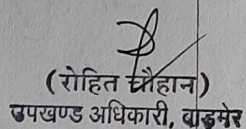 (रोहित चौहान)
उपखण्ड अधिकारी, बाड़मेर